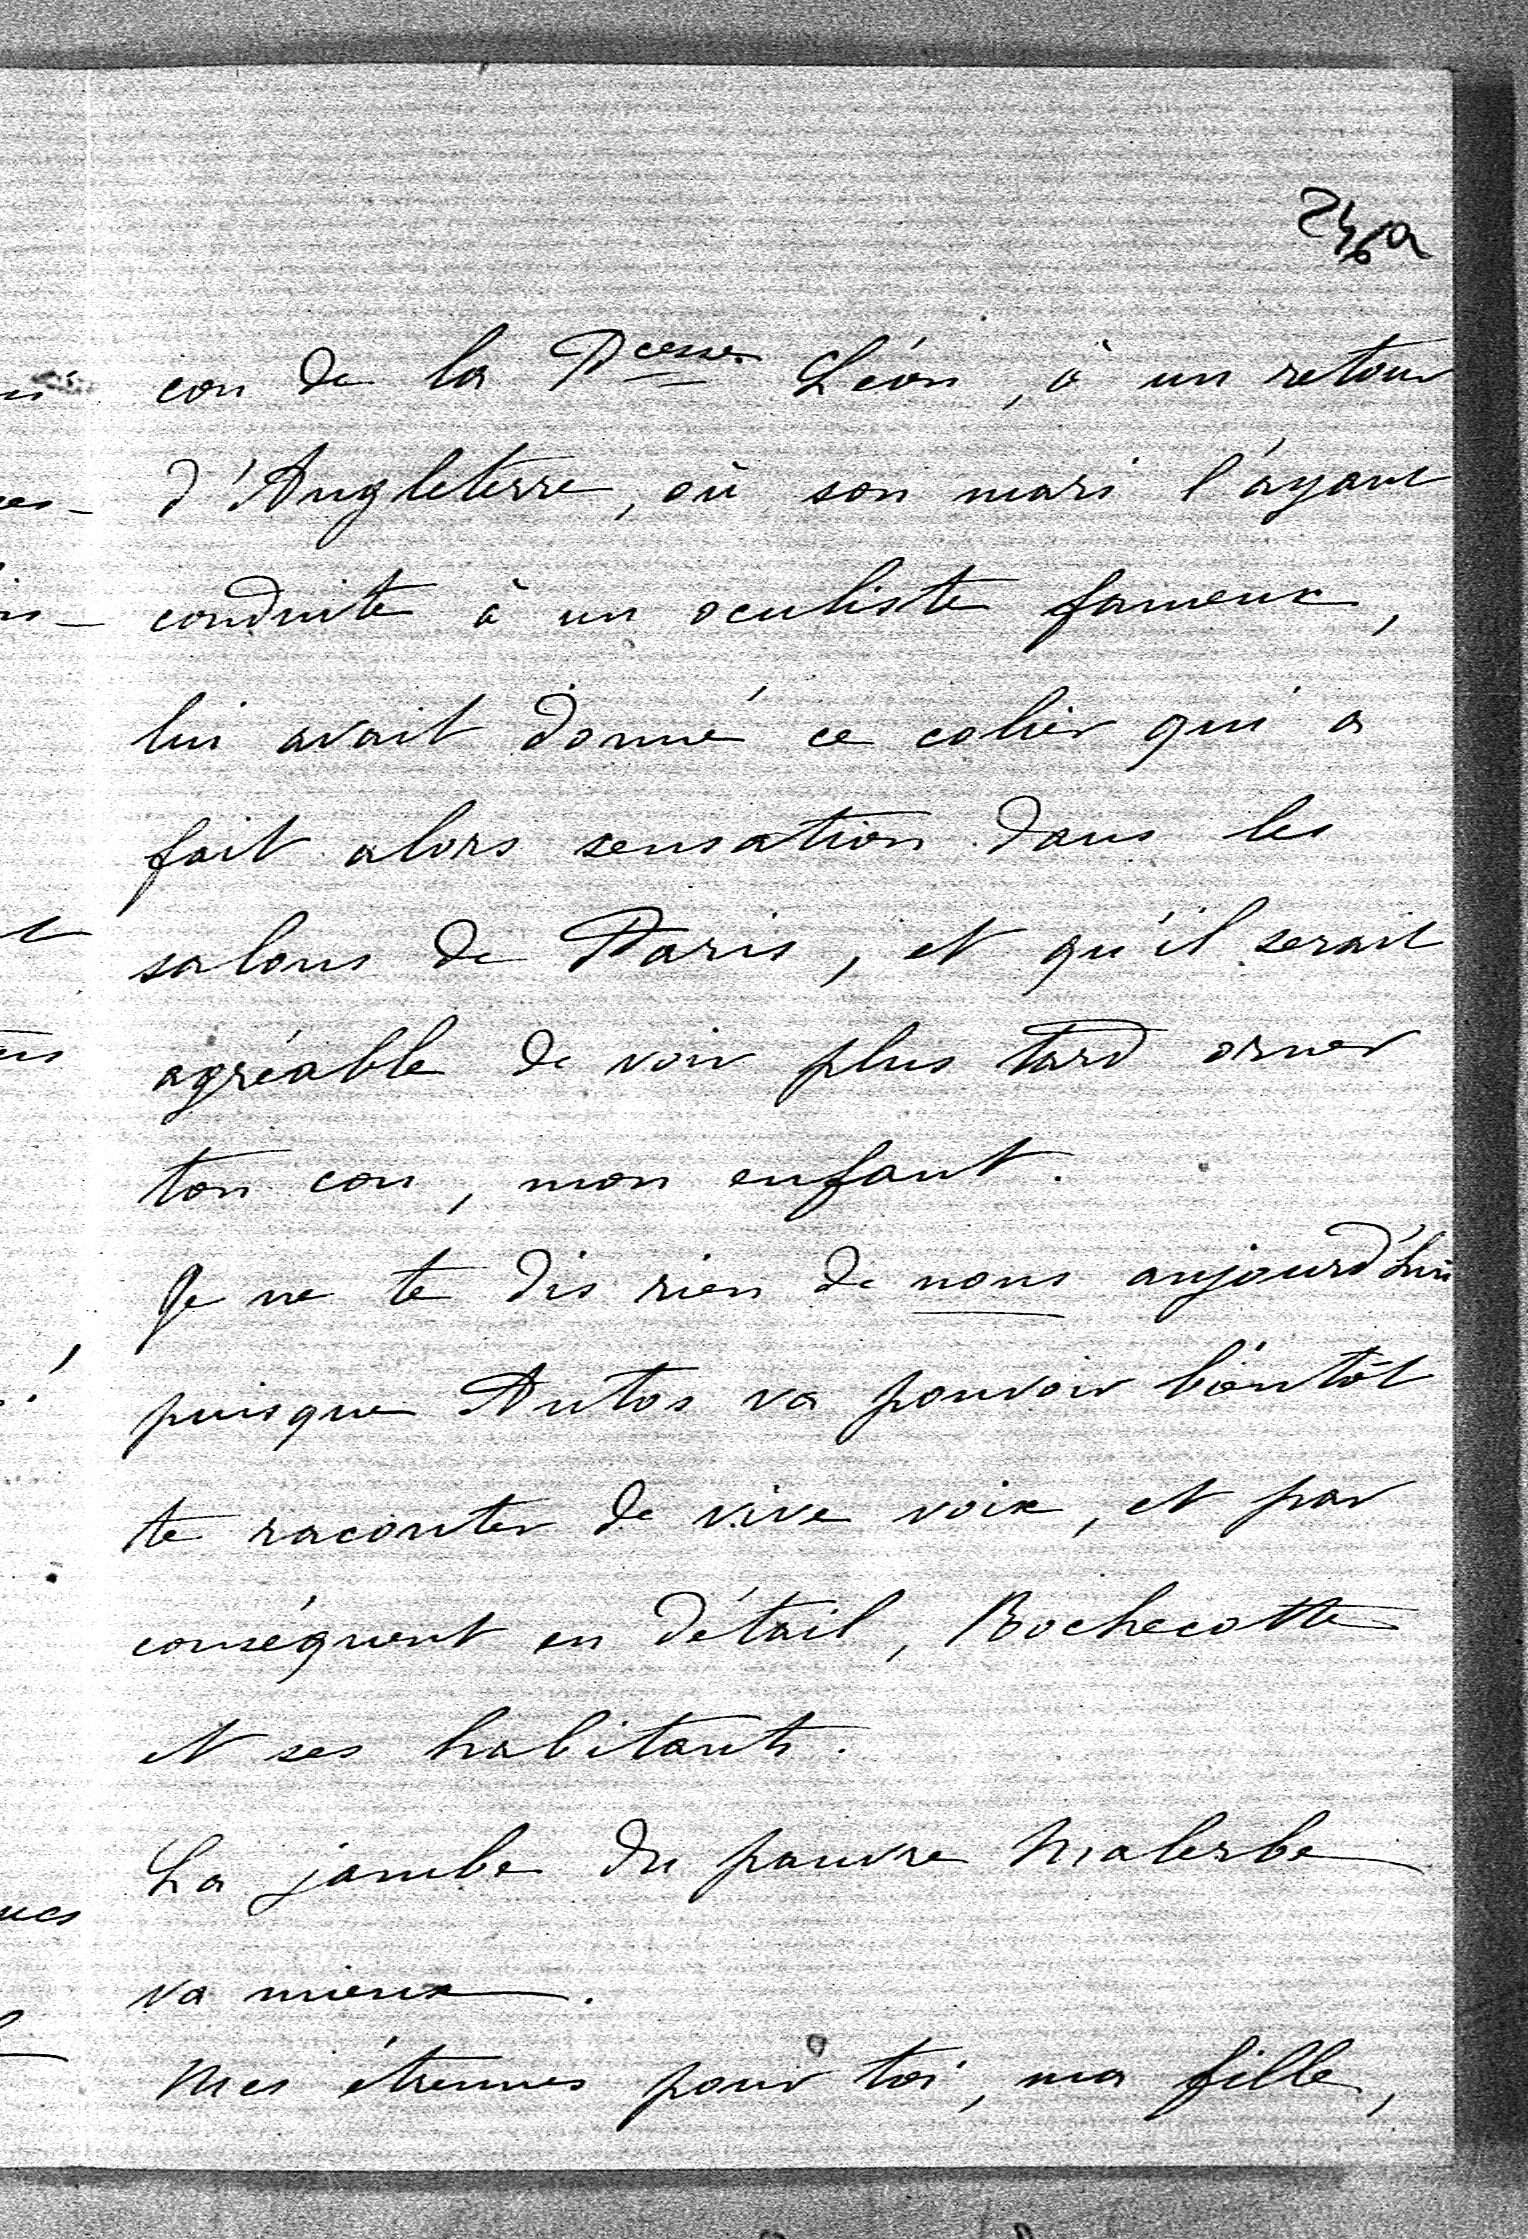 246a
cou de la Pcesse Léon, à un retour
d'Angleterre, où son mari l'ayant
conduite à un oculiste fameux,
lui avait donné ce colier qui a
fait alors sensation dans les
salons de Paris, et qu'il serait
agréable de voir plus tard orner
ton cou, mon enfant.
Je ne te dis rien de nous aujourd'hui
puisque Antos va pouvoir bientôt
te raconter de vive voix, et par
conséquent en détail, Rochecotte
et ses habitants.
La jambe du pauvre Malerbe
va mieux.
Mes étrennes pour toi, ma fille,